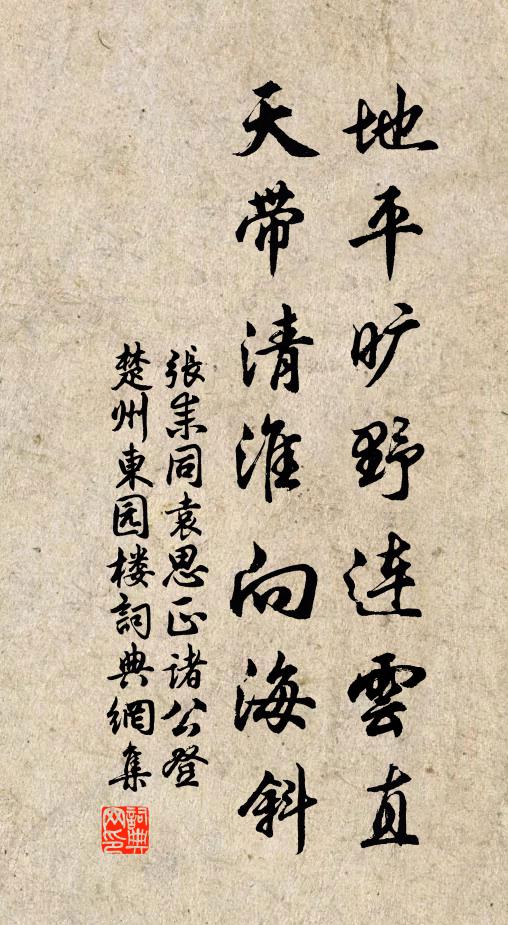 地平旷野连雲直
天带清淮向海斜
張耒同袁思正诸公登
楚州東园楼詞典網集
詞典网印